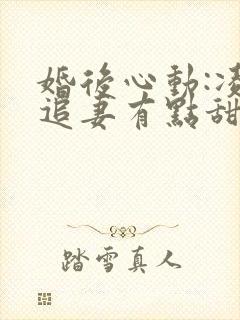 婚後心動:凌
追妻有點甜
踏雪真人